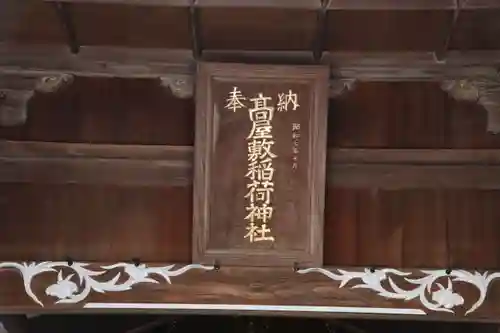 奉納
髙屋敷稲荷神社